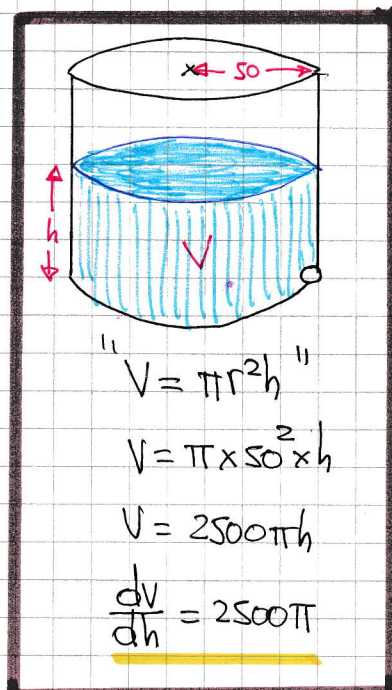 50
h
V
"V = πr²h"
V = π×50²×h
V = 2500πh
dV/dh = 2500π